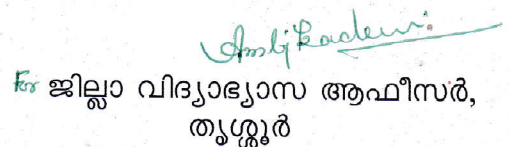 Ambikadevi
For ജില്ലാ വിദ്യാഭ്യാസ ആഫീസർ,
തൃശ്ശൂർ